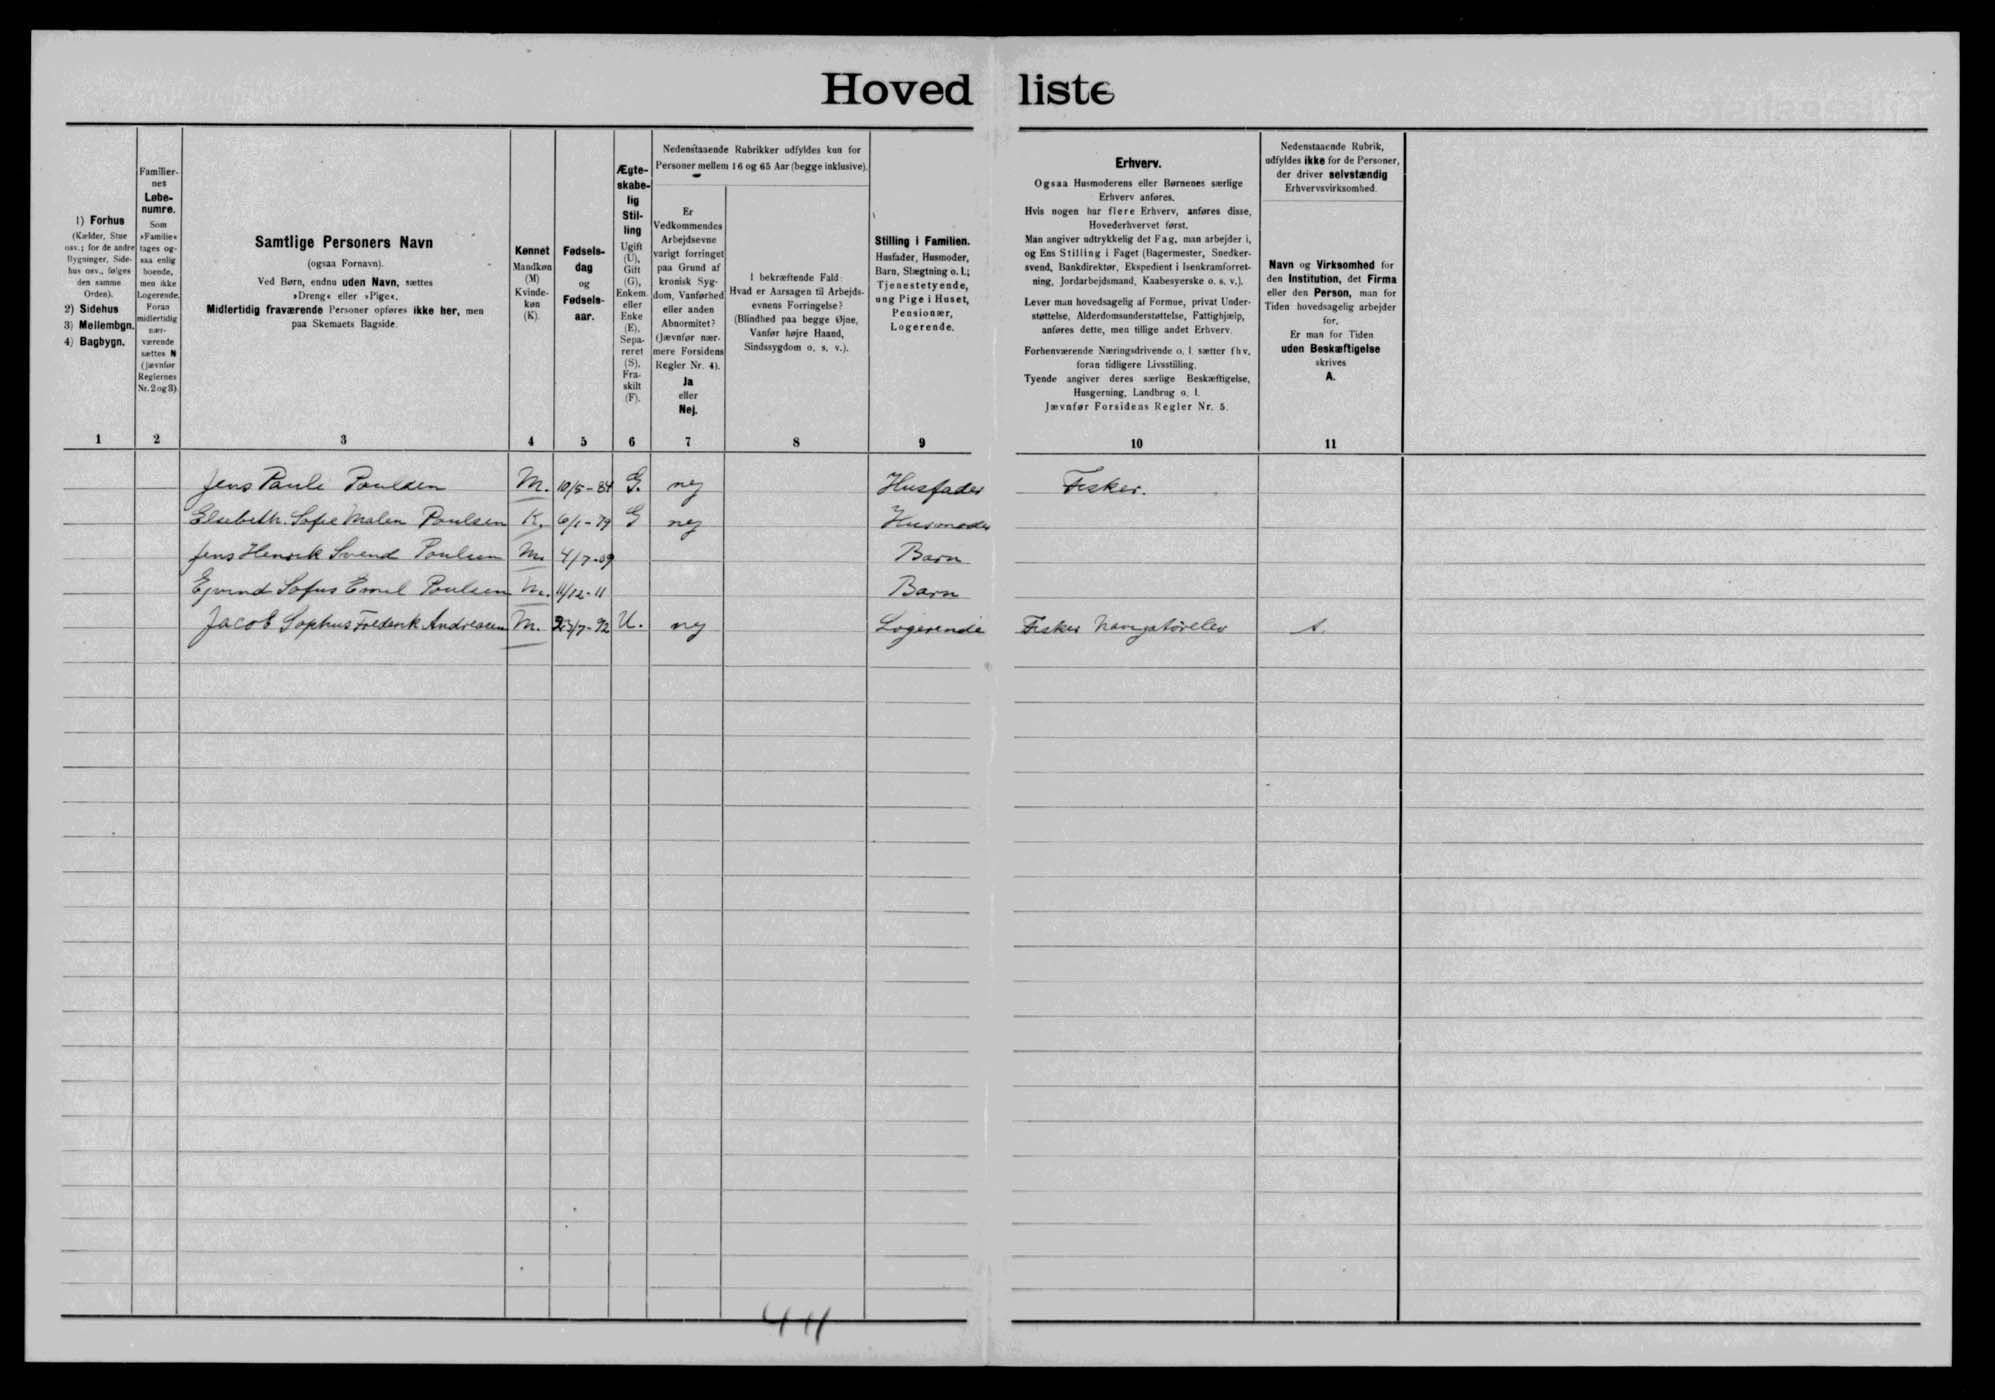 Hovedliste
1) Forhus
(Kælder, Stue
osv.; for de andre
Bygninger, Side-
hus osv., følges
den samme
Orden).
2) Sidehus
3) Mellembgn.
4) Bagbygn.
Familier-
nes
Løbe-
numre.
Som
»Familie«
tages og-
saa enlig
boende,
men ikke
Logerende.
Foran
midlertidig
nær-
værende
sættes N
(jævnfør
Reglernes
Nr. 2 og 3)
Samtlige Personers Navn
(ogsaa Fornavn).
Ved Børn, endnu uden Navn, sættes
»Dreng« eller »Pige«.
Midlertidig fraværende Personer opføres ikke her, men
paa Skemaets Bagside.
Kønnet
Mandkøn
(M)
Kvinde-
køn
(K).
Fødsels-
dag
og
Fødsels-
aar.
Ægte-
skabe-
lig
Stil-
ling
Ugift
(U),
Gift
(G),
Enkem.
eller
Enke
(E),
Sepa-
reret
(S),
Fra-
skilt
(F).
Nedenstaaende Rubrikker udfyldes kun for
Personer mellem 16 og 65 Aar (begge inklusive).
Er
Vedkommendes
Arbejdsevne
varigt forringet
paa Grund af
kronisk Syg-
dom, Vanførhed
eller anden
Abnormitet?
(Jævnfør nær-
mere Forsidens
Regler Nr. 4).
Ja
eller
Nej.
I bekræftende Fald:
Hvad er Aarsagen til Arbejds-
evnens Forringelse?
(Blindhed paa begge Øjne,
Vanfør højre Haand,
Sindssygdom o. s. v.).
Stilling i Familien.
Husfader, Husmoder,
Barn, Slægtning o. l.;
Tjenestetyende,
ung Pige i Huset,
Pensionær,
Logerende.
Erhverv.
Ogsaa Husmoderens eller Børnenes særlige
Erhverv anføres.
Hvis nogen har flere Erhverv, anføres disse,
Hovederhvervet først.
Man angiver udtrykkelig det Fag, man arbejder i,
og Ens Stilling i Faget (Bagermester, Snedker-
svend, Bankdirektør, Ekspedient i Isenkramforret-
ning, Jordarbejdsmand, Kaabesyerske o. s. v.).
Lever man hovedsagelig af Formue, privat Under-
støttelse, Alderdomsunderstøttelse, Fattighjælp,
anføres dette, men tillige andet Erhverv.
Forhenværende Næringsdrivende o. l. sætter fhv.
foran tidligere Livsstilling.
Tyende angiver deres særlige Beskæftigelse,
Husgerning, Landbrug o. l.
Jævnfør Forsidens Regler Nr. 5.
Nedenstaaende Rubrik,
udfyldes ikke for de Personer,
der driver selvstændig
Erhvervsvirksomhed.
Navn og Virksomhed for
den Institution, det Firma
eller den Person, man for
Tiden hovedsagelig arbejder
for.
Er man for Tiden
uden Beskæftigelse
skrives
A.
1 2 3 4 5 6 7 8 9 10 11
Jens Paule Poulsen M. 10/5-84 G. nej Husfader Fisker.
Elsebeth. Sofie Malen Poulsen K. 6/1-79 G nej Husmoder
Jens Henrik Svend Poulsen M. 4/7-09 Barn
Ejvind Sofus Emil Poulsen M. 11/12-11 Barn
Jacob Sophus Frederik Andreasen M. 23/7-92 U. nej Logerende Fisker Navigatørelev A.